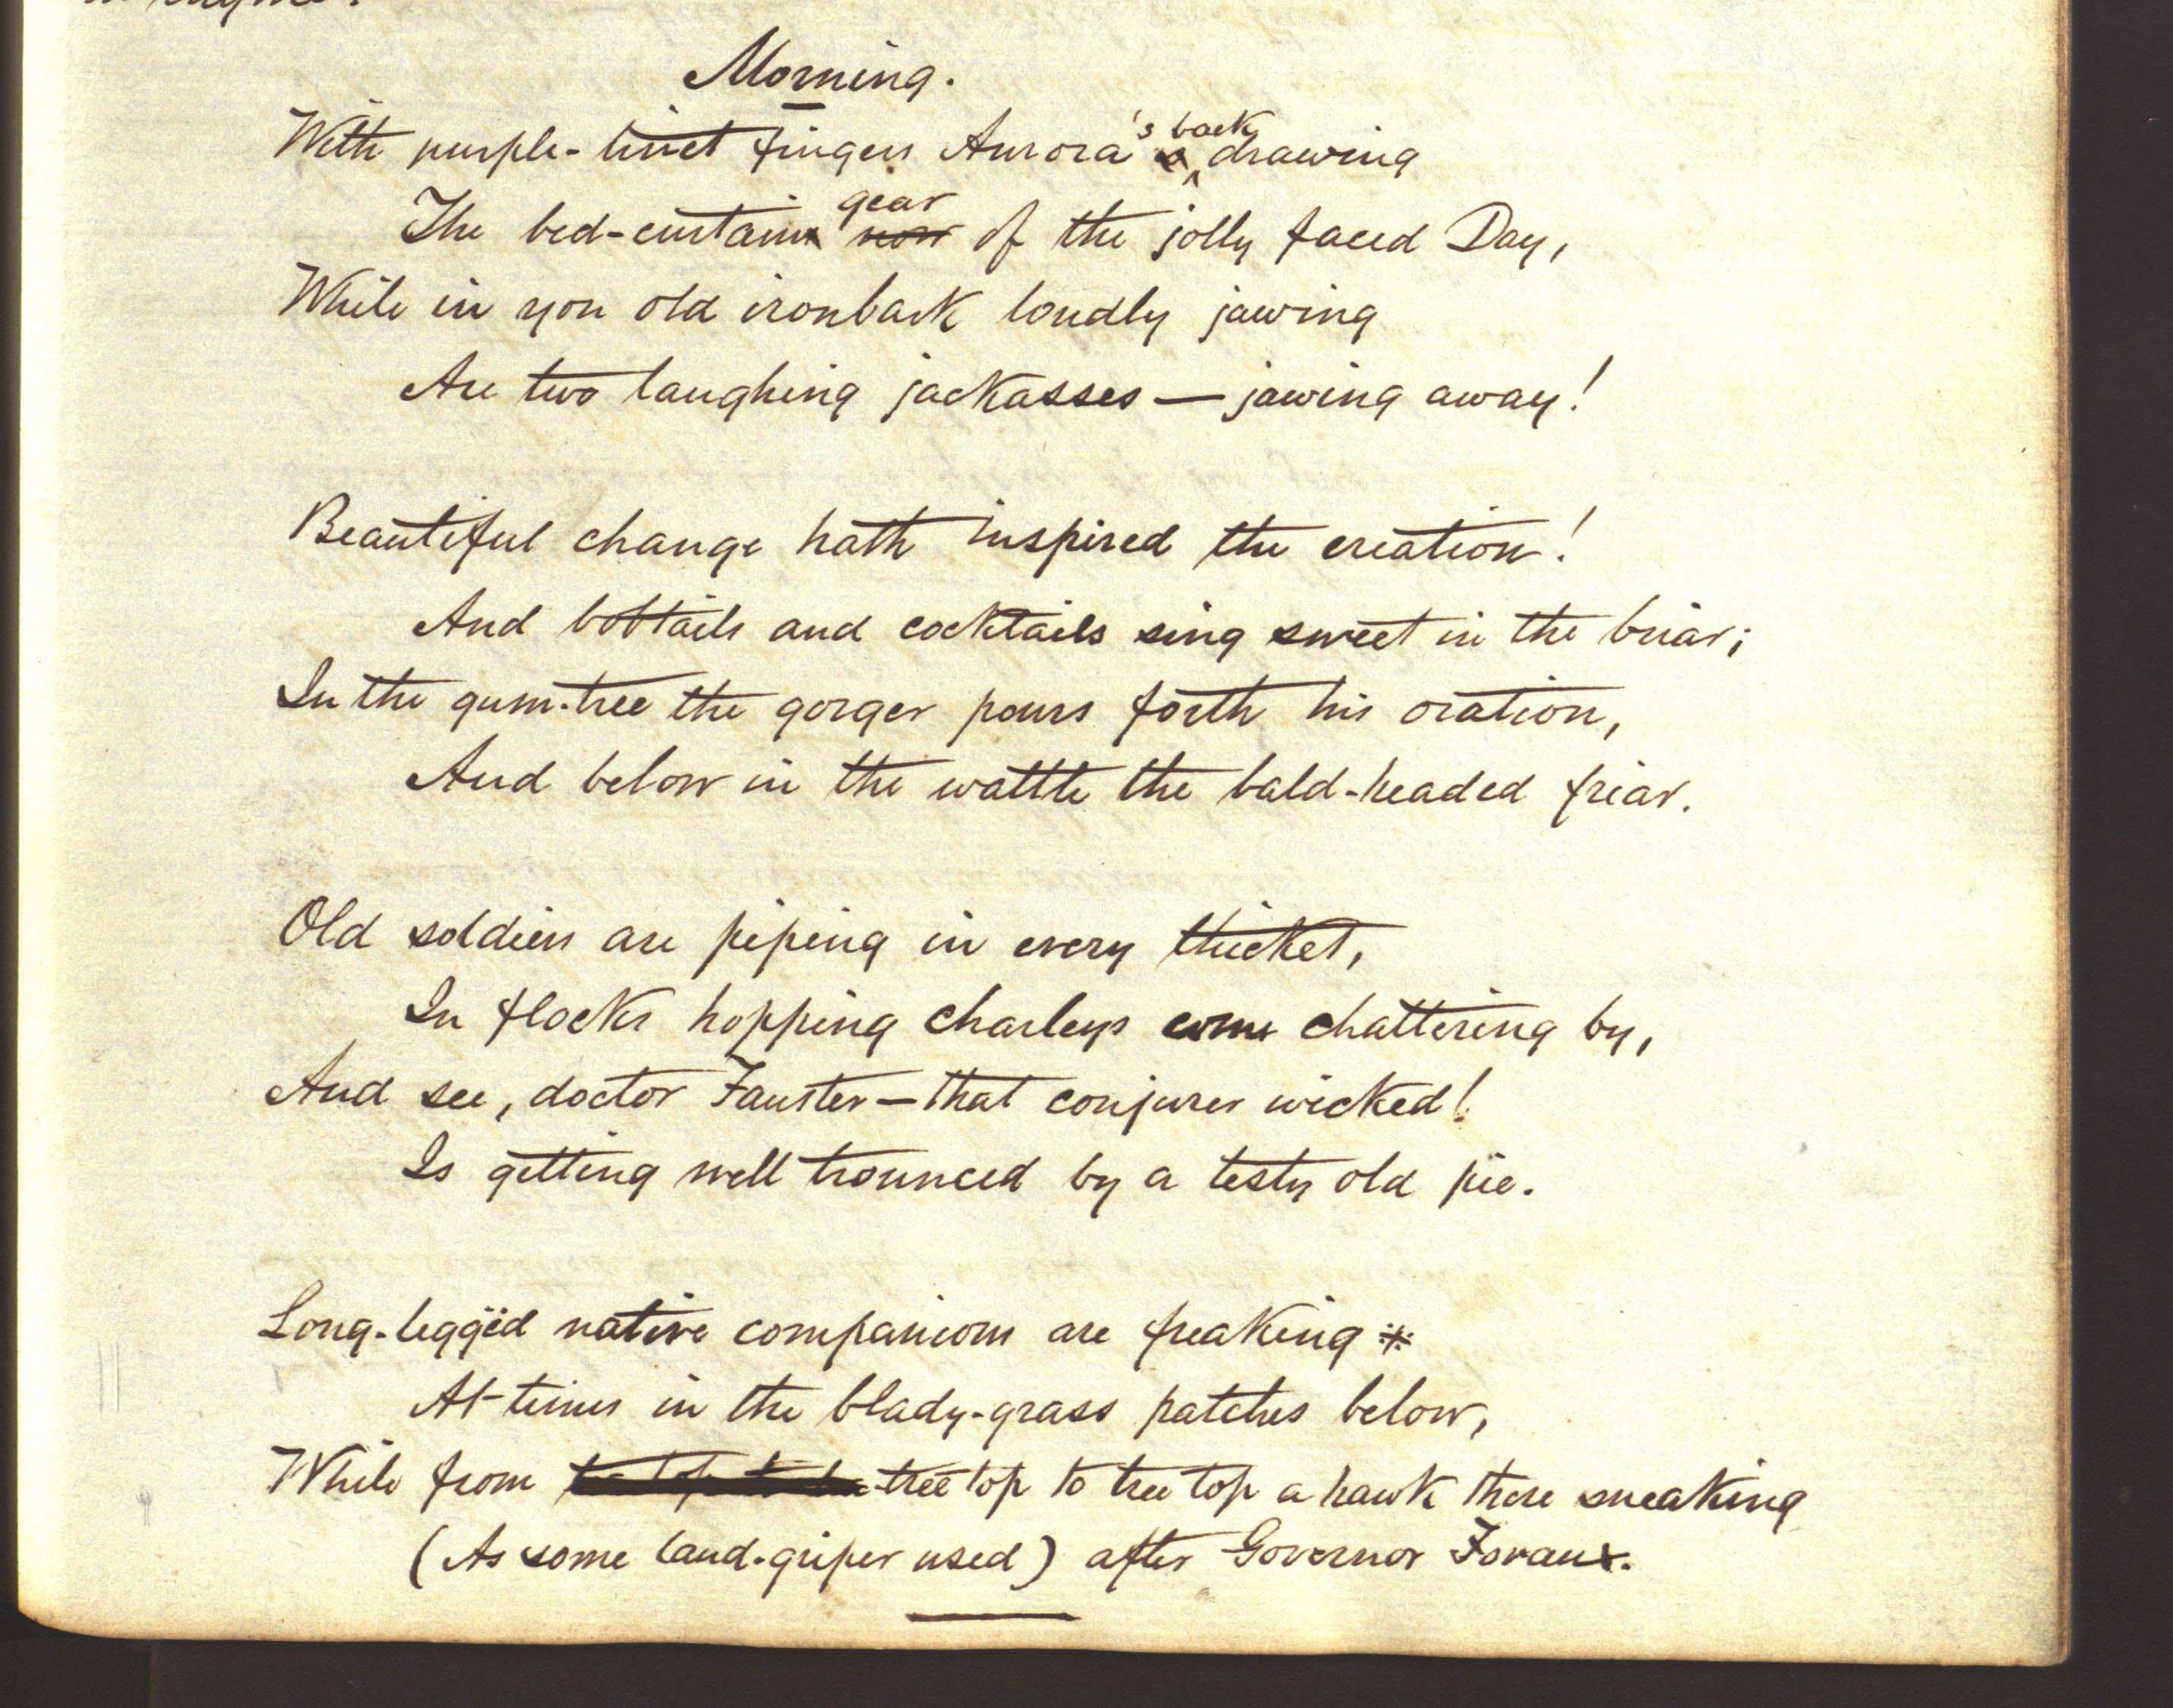 Morning.
With purple-tinct fingers Aurora's back drawing
The bed-curtain gear of the jolly faced Day,
While in yon old ironbark loudly jawing
Are two laughing jackasses — jawing away!
Beautiful change hath inspired the creation!
And bobtails and cocktails sing sweet in the briar;
In the gum-tree the gorger pours forth his oration,
And below in the wattle the bald-headed friar.
Old soldiers are piping in every thicket,
In flocks hopping charleys come chattering by,
And see, doctor Fauster — that conjurer wicked!
Is getting well trounced by a testy old pie.
Long-leggëd native companions are freaking *
At times in the blady-grass patches below,
While from tree top to tree top a hawk there sneaking
(As some land-griper used) after Governor Foraux.